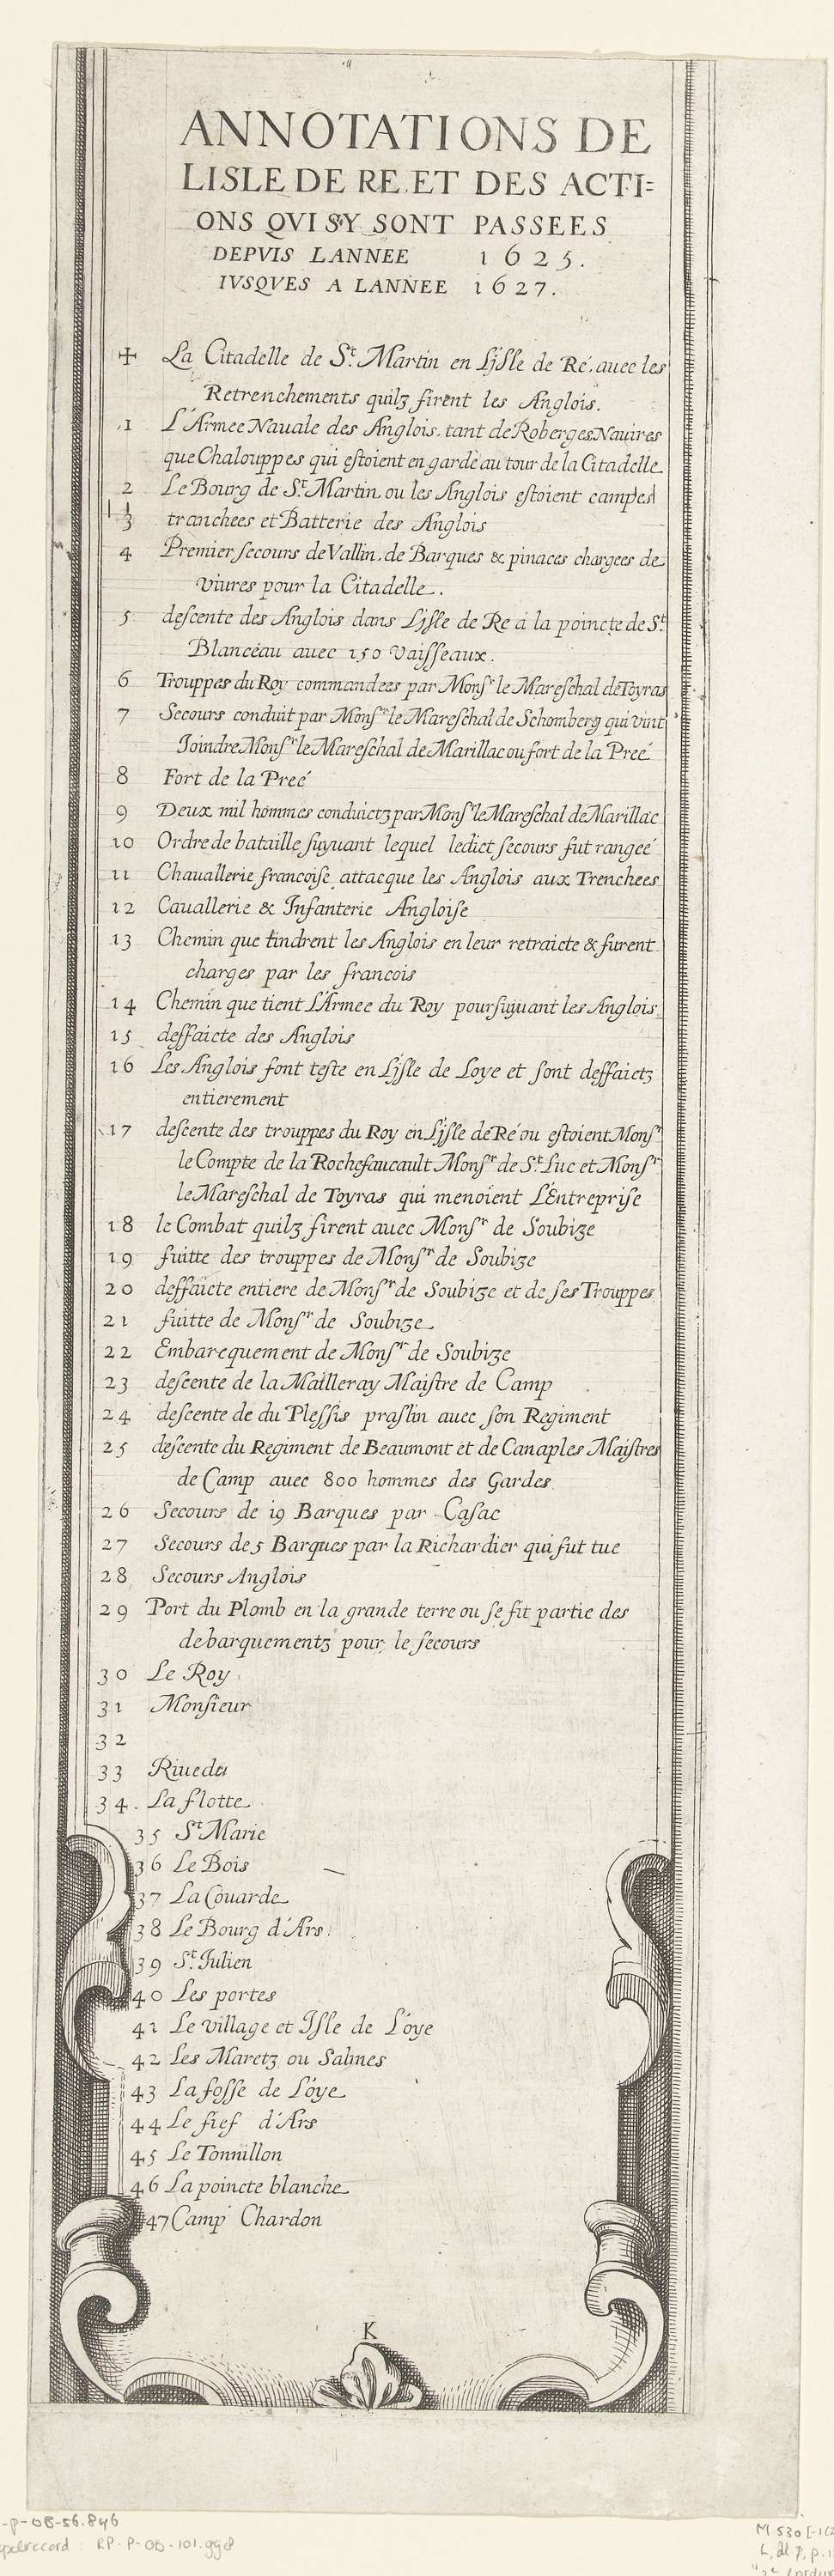 ANNOTATIONS DE
LISLE DE RE, ET DES ACTI=
ONS QVI S'Y SONT PASSEES
DEPVIS LANNEE 1625.
IVSQVES A LANNEE 1627.
✠ La Citadelle de St. Martin en Ljsle de Ré, auec les
Retrenchements quilz firent les Anglois.
1 L'Armee Nauale des Anglois, tant de Roberges Nauires
que Chalouppes qui estoient en garde au tour de la Citadelle
2 Le Bourg de St. Martin ou les Anglois estoient campés
3 tranchees et Batterie des Anglois
4 Premier secours de Vallin, de Barques & pinaces chargees de
viures pour la Citadelle.
5 descente des Anglois dans Ljsle de Re a la poincte de St.
Blanceau auec 150 Vaisseaux.
6 Trouppes du Roy commandees par Monsr le Mareschal de Toyras
7 Secours conduit par Monsr le Mareschal de Schomberg qui vint
Joindre Monsr le Mareschal de Marillac ou fort de la Preé
8 Fort de la Preé
9 Deux mil hommes conduictz par Monsr le Mareschal de Marillac
10 Ordre de bataille suyuant lequel ledict secours fut rangeé
11 Chauallerie francoise, attacque les Anglois aux Trenchees
12 Cauallerie & Infanterie Angloise
13 Chemin que tindrent les Anglois en leur retraicte & furent
charges par les francois
14 Chemin que tient L'Armee du Roy poursuiuant les Anglois
15 deffaicte des Anglois
16 Les Anglois font teste en Ljsle de Loye et sont deffaictz
entierement
17 descente des trouppes du Roy en Ljsle de Ré ou estoient Monsr
le Compte de la Rochefaucault Monsr de St. Luc et Monsr
le Mareschal de Toyras qui menoient L'Entreprise
18 le Combat quilz firent auec Monsr de Soubize
19 fuitte des trouppes de Monsr de Soubize
20 deffaicte entiere de Monsr de Soubize et de ses Trouppes
21 fuitte de Monsr de Soubize
22 Embarcquement de Monsr de Soubize
23 descente de la Mailleray Maistre de Camp
24 descente de du Plessis praslin auec son Regiment
25 descente du Regiment de Beaumont et de Canaples Maistres
de Camp auec 800 hommes des Gardes
26 Secours de 19 Barques par Casac
27 Secours de 5 Barques par la Richardier qui fut tue
28 Secours Anglois
29 Port du Plomb en la grande terre ou se fit partie des
debarquementz pour le secours
30 Le Roy
31 Monsieur
32
33 Riuedu
34. La flotte
35 St Marie
36 Le Bois
37 La Couarde
38 Le Bourg d'Ars
39 St. Julien
40 Les portes
41 Le village et Isle de L'oye
42 Les Maretz ou Salines
43 La fosse de L'oye
44 Le fief d'Ars
45 Le Tonnillon
46 La poincte blanche
47 Camp Chardon
K
-P-OB-56.846
RP-P-OB-101.998
M 530 [-1(2